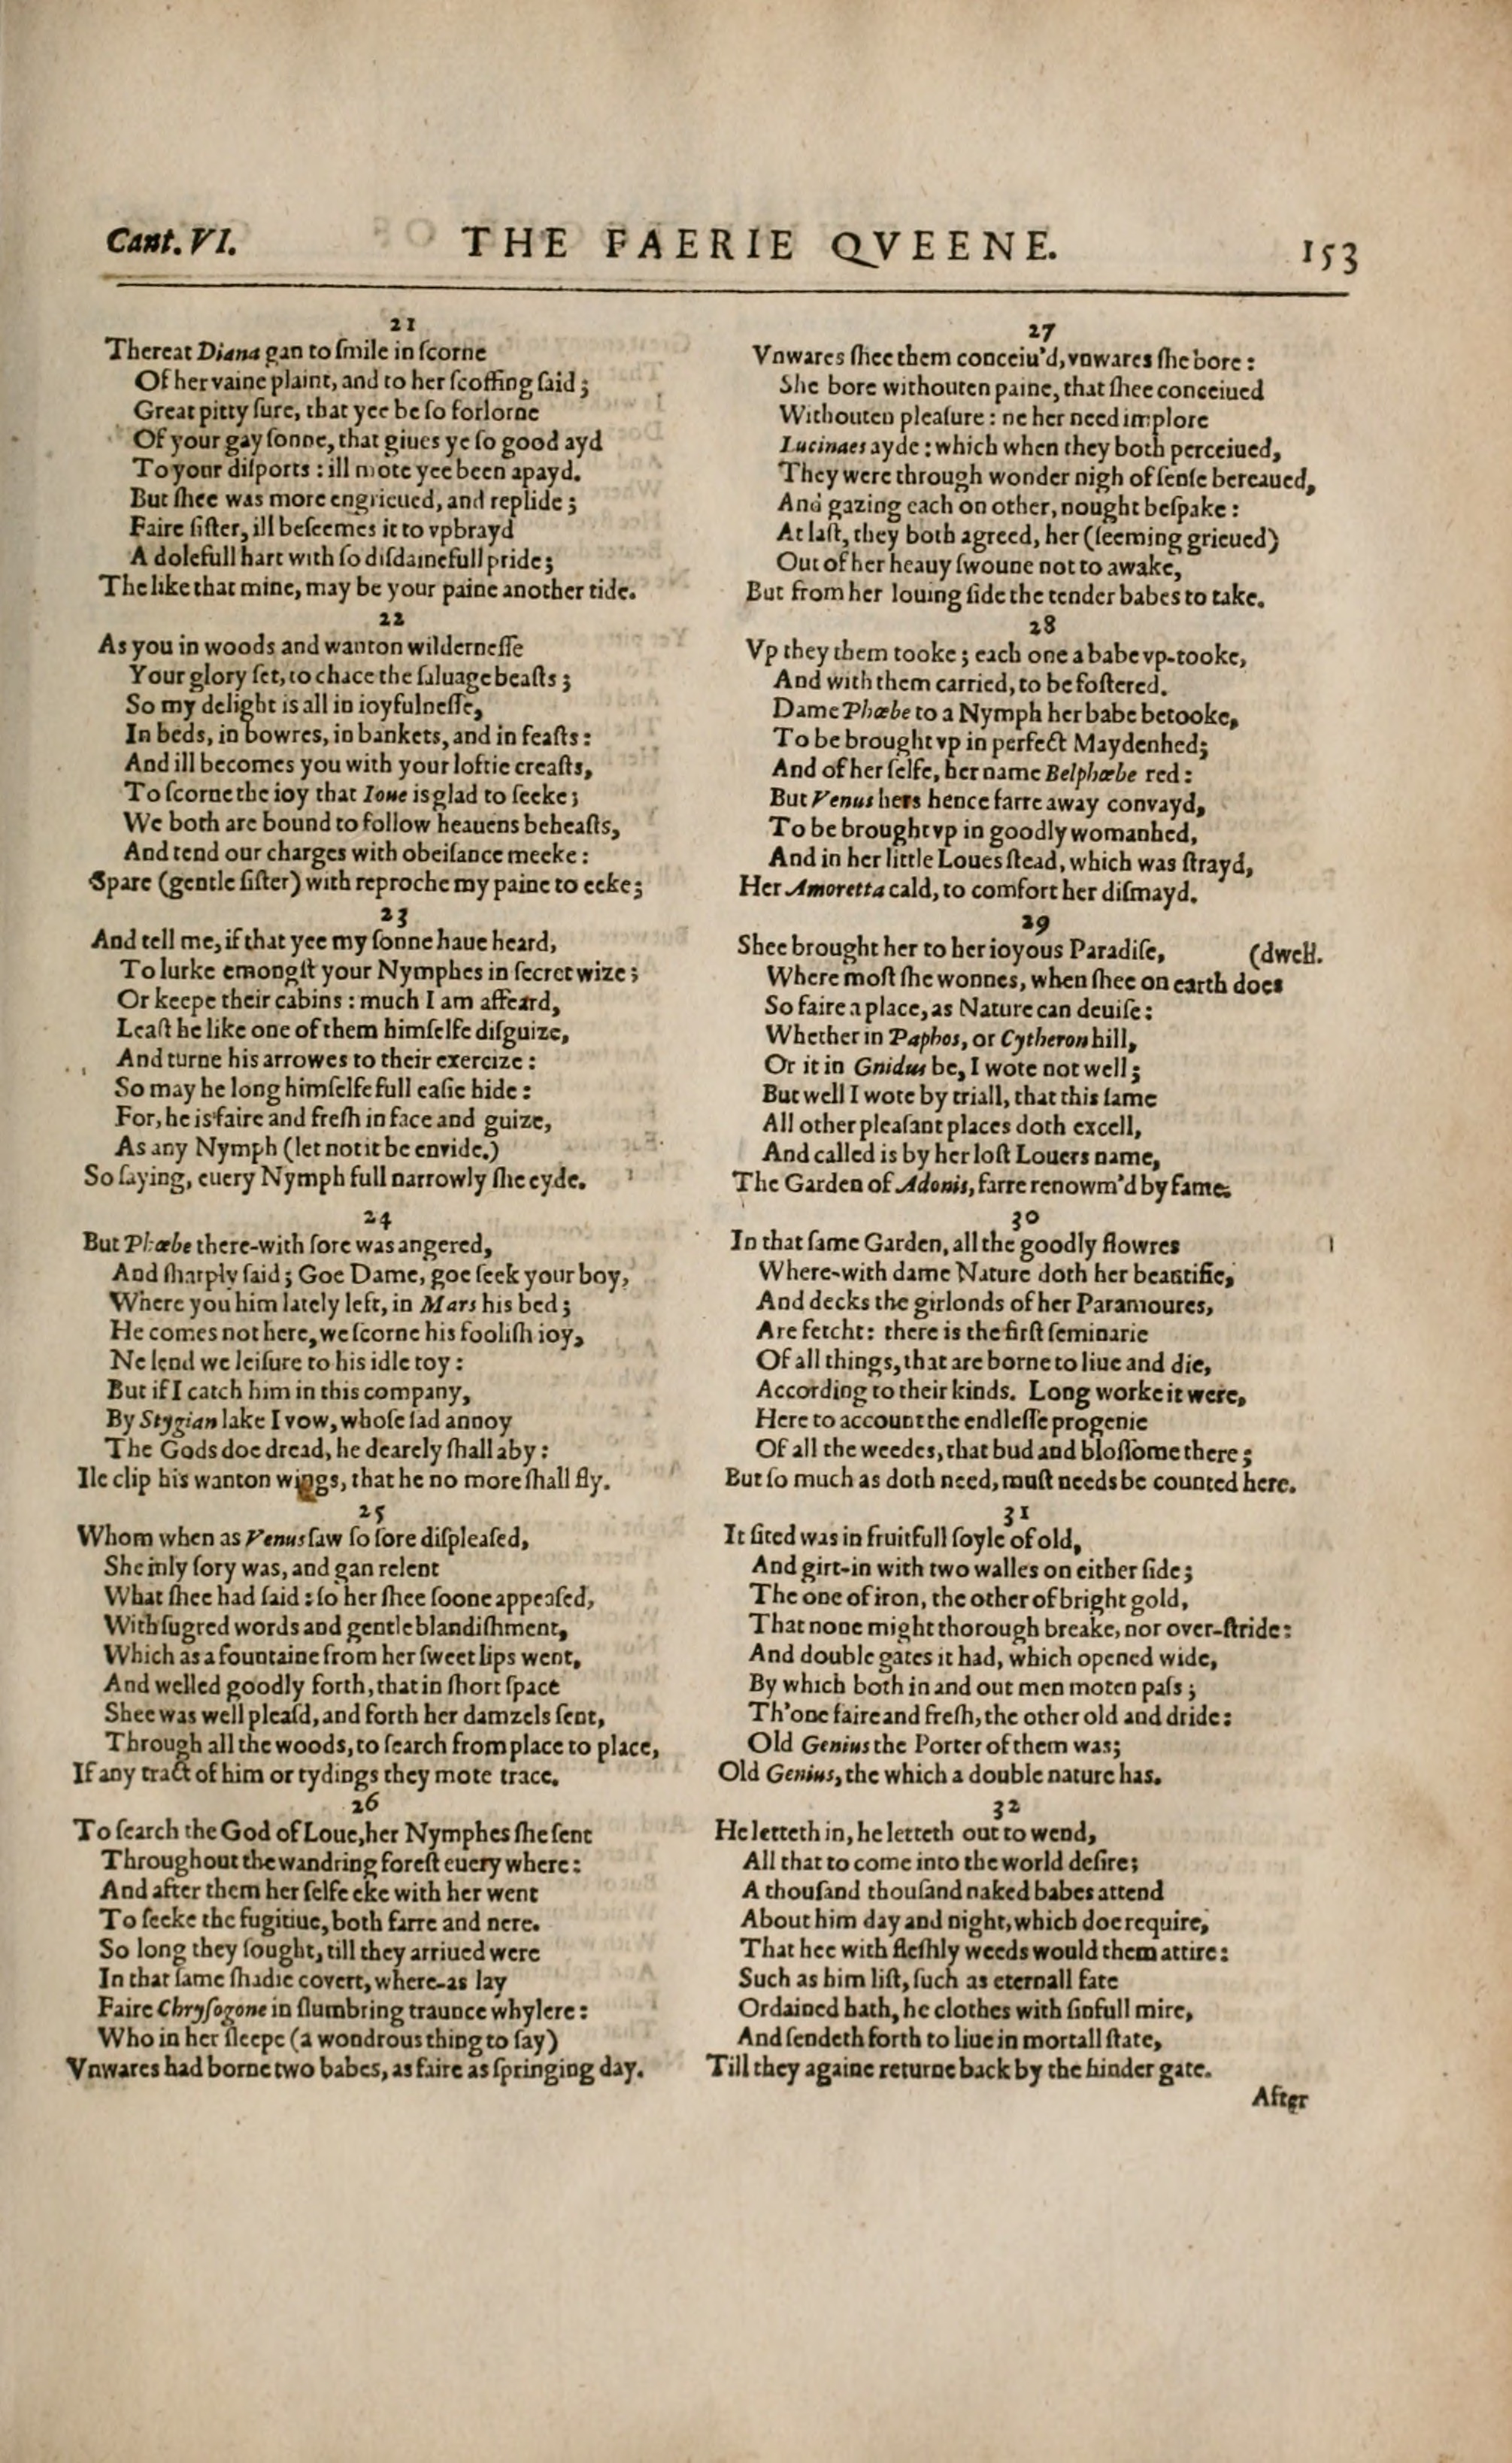 Cant. VI. THE FAERIE QVEENE. 153
21
Thereat Diana gan to ſmile in ſcorne
Of her vaine plaint, and to her ſcoffing ſaid;
Great pitty ſure, that yee be ſo forlorne
Of your gay ſonne, that giues ye ſo good ayd
To your diſports : ill mote yee been apayd.
But ſhee was more engrieued, and replide;
Faire ſiſter, ill beſeemes it to vpbrayd
A dolefull hart with ſo diſdainefull pride;
The like that mine, may be your paine another tide.
22
As you in woods and wanton wilderneſſe
Your glory ſet, to chace the ſaluage beaſts;
So my delight is all in ioyfulneſſe,
In beds, in bowres, in bankets, and in feaſts:
And ill becomes you with your loftie creaſts,
To ſcorne the ioy that Ioue is glad to ſeeke;
We both are bound to follow heauens beheaſts,
And tend our charges with obeiſance meeke:
Spare (gentle ſiſter) with reproche my paine to eeke;
23
And tell me, if that yee my ſonne haue heard,
To lurke emongſt your Nymphes in ſecret wize;
Or keepe their cabins : much I am affeard,
Leaſt he like one of them himſelfe diſguize,
And turne his arrowes to their exercize:
So may he long himſelfe full eaſie hide:
For, he is faire and freſh in face and guize,
As any Nymph (let not it be envide.)
So ſaying, euery Nymph full narrowly ſhe eyde.
24
But Phœbe there-with ſore was angered,
And ſharply ſaid; Goe Dame, goe ſeek your boy,
Where you him lately left, in Mars his bed;
He comes not here, we ſcorne his fooliſh ioy,
Ne lend we leiſure to his idle toy:
But if I catch him in this company,
By Stygian lake I vow, whoſe ſad annoy
The Gods doe dread, he dearely ſhall aby:
Ile clip his wanton wings, that he no more ſhall fly.
25
Whom when as Venus ſaw ſo ſore diſpleaſed,
She inly ſory was, and gan relent
What ſhee had ſaid : ſo her ſhee ſoone appeaſed,
With ſugred words and gentle blandiſhment,
Which as a fountaine from her ſweet lips went,
And welled goodly forth, that in ſhort ſpace
Shee was well pleaſd, and forth her damzels ſent,
Through all the woods, to ſearch from place to place,
If any tract of him or tydings they mote trace.
26
To ſearch the God of Loue, her Nymphes ſhe ſent
Throughout the wandring foreſt euery where:
And after them her ſelfe eke with her went
To ſeeke the fugitiue, both farre and nere.
So long they ſought, till they arriued were
In that ſame ſhadie covert, where-as lay
Faire Chryſogone in ſlumbring traunce whylere:
Who in her ſleepe (a wondrous thing to ſay)
Vnwares had borne two babes, as faire as ſpringing day.
27
Vnwares ſhee them conceiu'd, vnwares ſhe bore:
She bore withouten paine, that ſhee conceiued
Withouten pleaſure : ne her need implore
Lucinaes ayde : which when they both perceiued,
They were through wonder nigh of ſenſe bereaued,
And gazing each on other, nought beſpake:
At laſt, they both agreed, her (ſeeming grieued)
Out of her heauy ſwoune not to awake,
But from her louing ſide the tender babes to take.
28
Vp they them tooke; each one a babe vp-tooke,
And with them carried, to be foſtered.
Dame Phœbe to a Nymph her babe betooke,
To be brought vp in perfect Maydenhed;
And of her ſelfe, her name Belphœbe red:
But Venus hers hence farre away convayd,
To be brought vp in goodly womanhed,
And in her little Loues ſtead, which was ſtrayd,
Her Amoretta cald, to comfort her diſmayd.
29
Shee brought her to her ioyous Paradiſe, (dwell.
Where moſt ſhe wonnes, when ſhee on earth does
So faire a place, as Nature can deuiſe:
Whether in Paphos, or Cytheron hill,
Or it in Gnidus be, I wote not well;
But well I wote by triall, that this ſame
All other pleaſant places doth excell,
And called is by her loſt Louers name,
The Garden of Adonis, farre renowm'd by fame.
30
In that ſame Garden, all the goodly flowres
Where-with dame Nature doth her beautifie,
And decks the girlonds of her Paramoures,
Are fetcht: there is the firſt ſeminarie
Of all things, that are borne to liue and die,
According to their kinds. Long worke it were,
Here to account the endleſſe progenie
Of all the weedes, that bud and bloſſome there;
But ſo much as doth need, muſt needs be counted here.
31
It ſited was in fruitfull ſoyle of old,
And girt-in with two walles on either ſide;
The one of iron, the other of bright gold,
That none might thorough breake, nor over-ſtride:
And double gates it had, which opened wide,
By which both in and out men moten paſs;
Th'one faire and freſh, the other old and dride:
Old Genius the Porter of them was;
Old Genius, the which a double nature has.
32
He letteth in, he letteth out to wend,
All that to come into the world deſire;
A thouſand thouſand naked babes attend
About him day and night, which doe require,
That hee with fleſhly weeds would them attire:
Such as him liſt, ſuch as eternall fate
Ordained hath, he clothes with ſinfull mire,
And ſendeth forth to liue in mortall ſtate,
Till they againe returne back by the hinder gate.
After